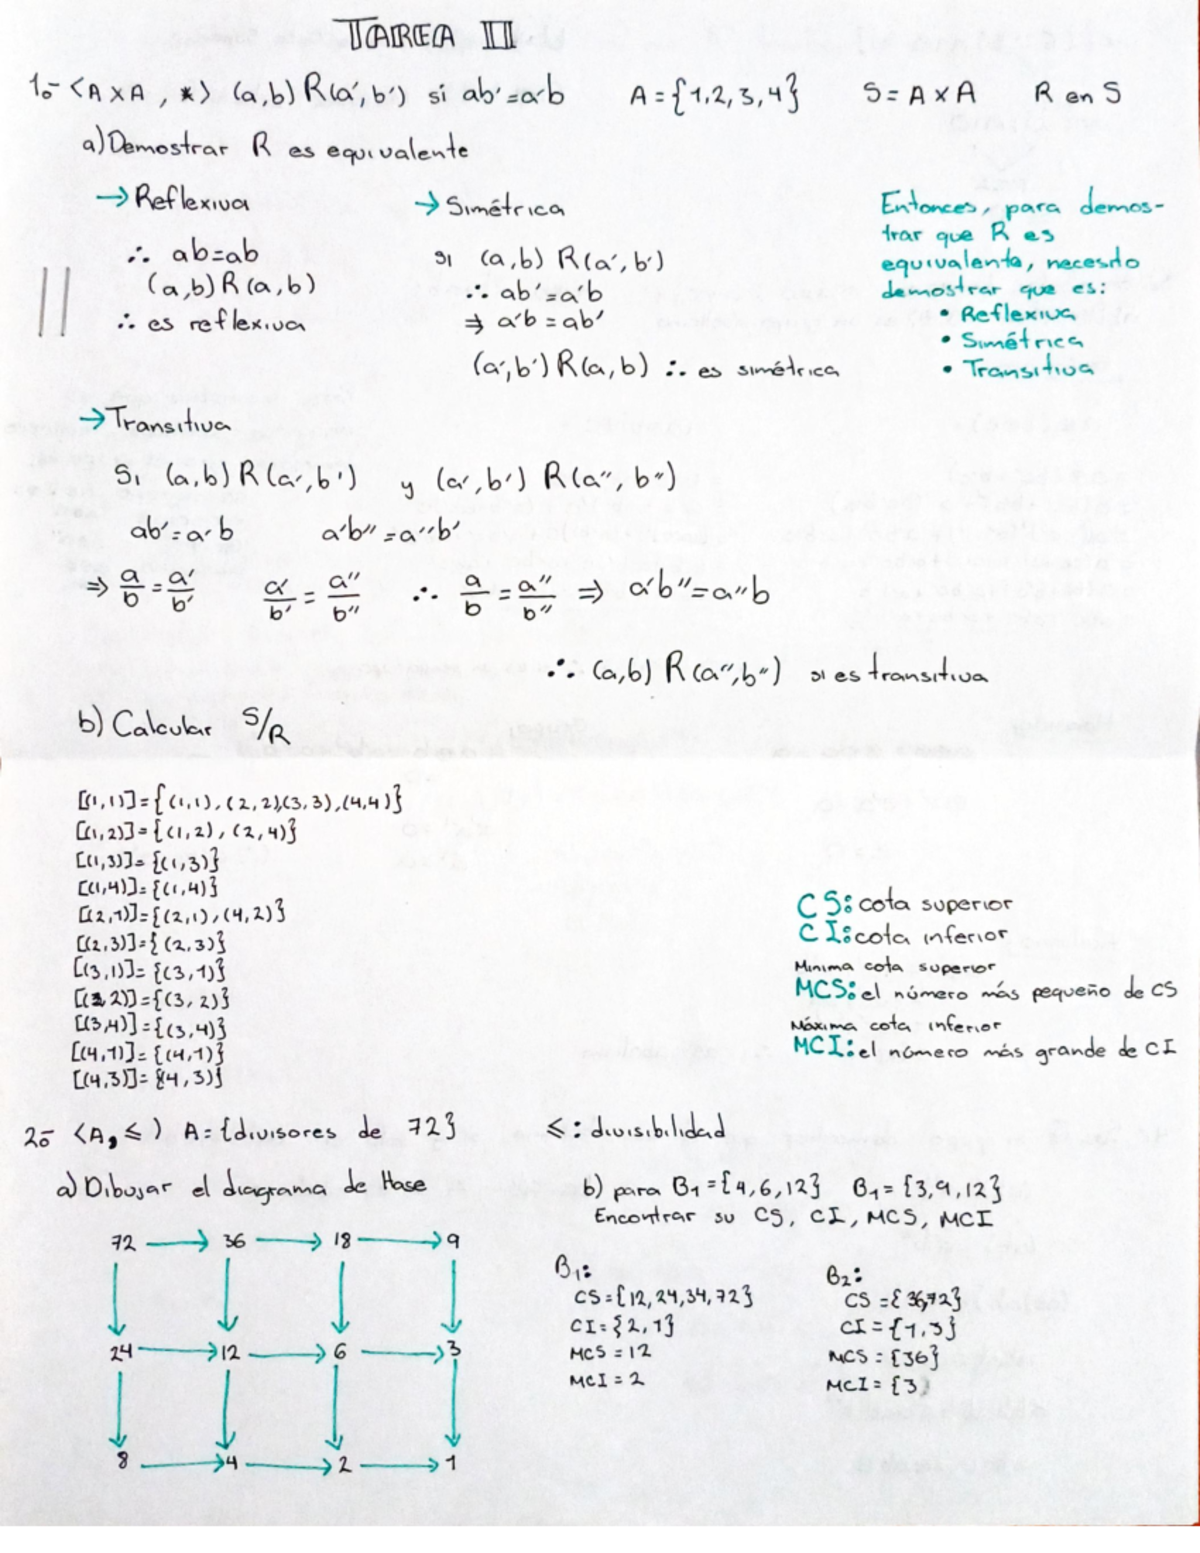 TAREA II
1.- <A x A , *> (a,b) R(a',b') si ab'=a'b A={1,2,3,4} S=A x A R en S
a) Demostrar R es equivalente
→ Reflexiva
∴ ab=ab
(a,b)R(a,b)
∴ es reflexiva
→ Simétrica
si (a,b) R(a',b')
∴ ab'=a'b
⇒ a'b=ab'
(a',b')R(a,b) ∴ es simétrica
Entonces, para demos-
trar que R es
equivalente, necesito
demostrar que es:
• Reflexiva
• Simétrica
• Transitiva
→ Transitiva
Si (a,b)R(a',b') y (a',b') R(a'',b'')
ab'=a'b a'b''=a''b'
⇒ a/b = a'/b' a'/b' = a''/b'' ∴ a/b = a''/b'' ⇒ a'b''=a''b
∴ (a,b) R(a'',b'') si es transitiva
b) Calcular S/R
[(1,1)]={(1,1),(2,2),(3,3),(4,4)}
[(1,2)]={(1,2),(2,4)}
[(1,3)]={(1,3)}
[(1,4)]={(1,4)}
[(2,1)]={(2,1),(4,2)}
[(2,3)]={(2,3)}
[(3,1)]={(3,1)}
[(3,2)]={(3,2)}
[(3,4)]={(3,4)}
[(4,1)]={(4,1)}
[(4,3)]={4,3)}
CS: cota superior
CI: cota inferior
Mínima cota superior
MCS: el número más pequeño de CS
Máxima cota inferior
MCI: el número más grande de CI
2.- <A, ≤) A={divisores de 72} ≤: divisibilidad
a) Dibujar el diagrama de Hase
72 → 36 → 18 → 9
24 → 12 → 6 → 3
8 → 4 → 2 → 1
b) para B1={4,6,12} B1={3,9,12}
Encontrar su CS, CI, MCS, MCI
B1:
CS={12,24,34,72}
CI={2,1}
MCS=12
MCI=2
B2:
CS={36,72}
CI={1,3}
MCS={36}
MCI={3}